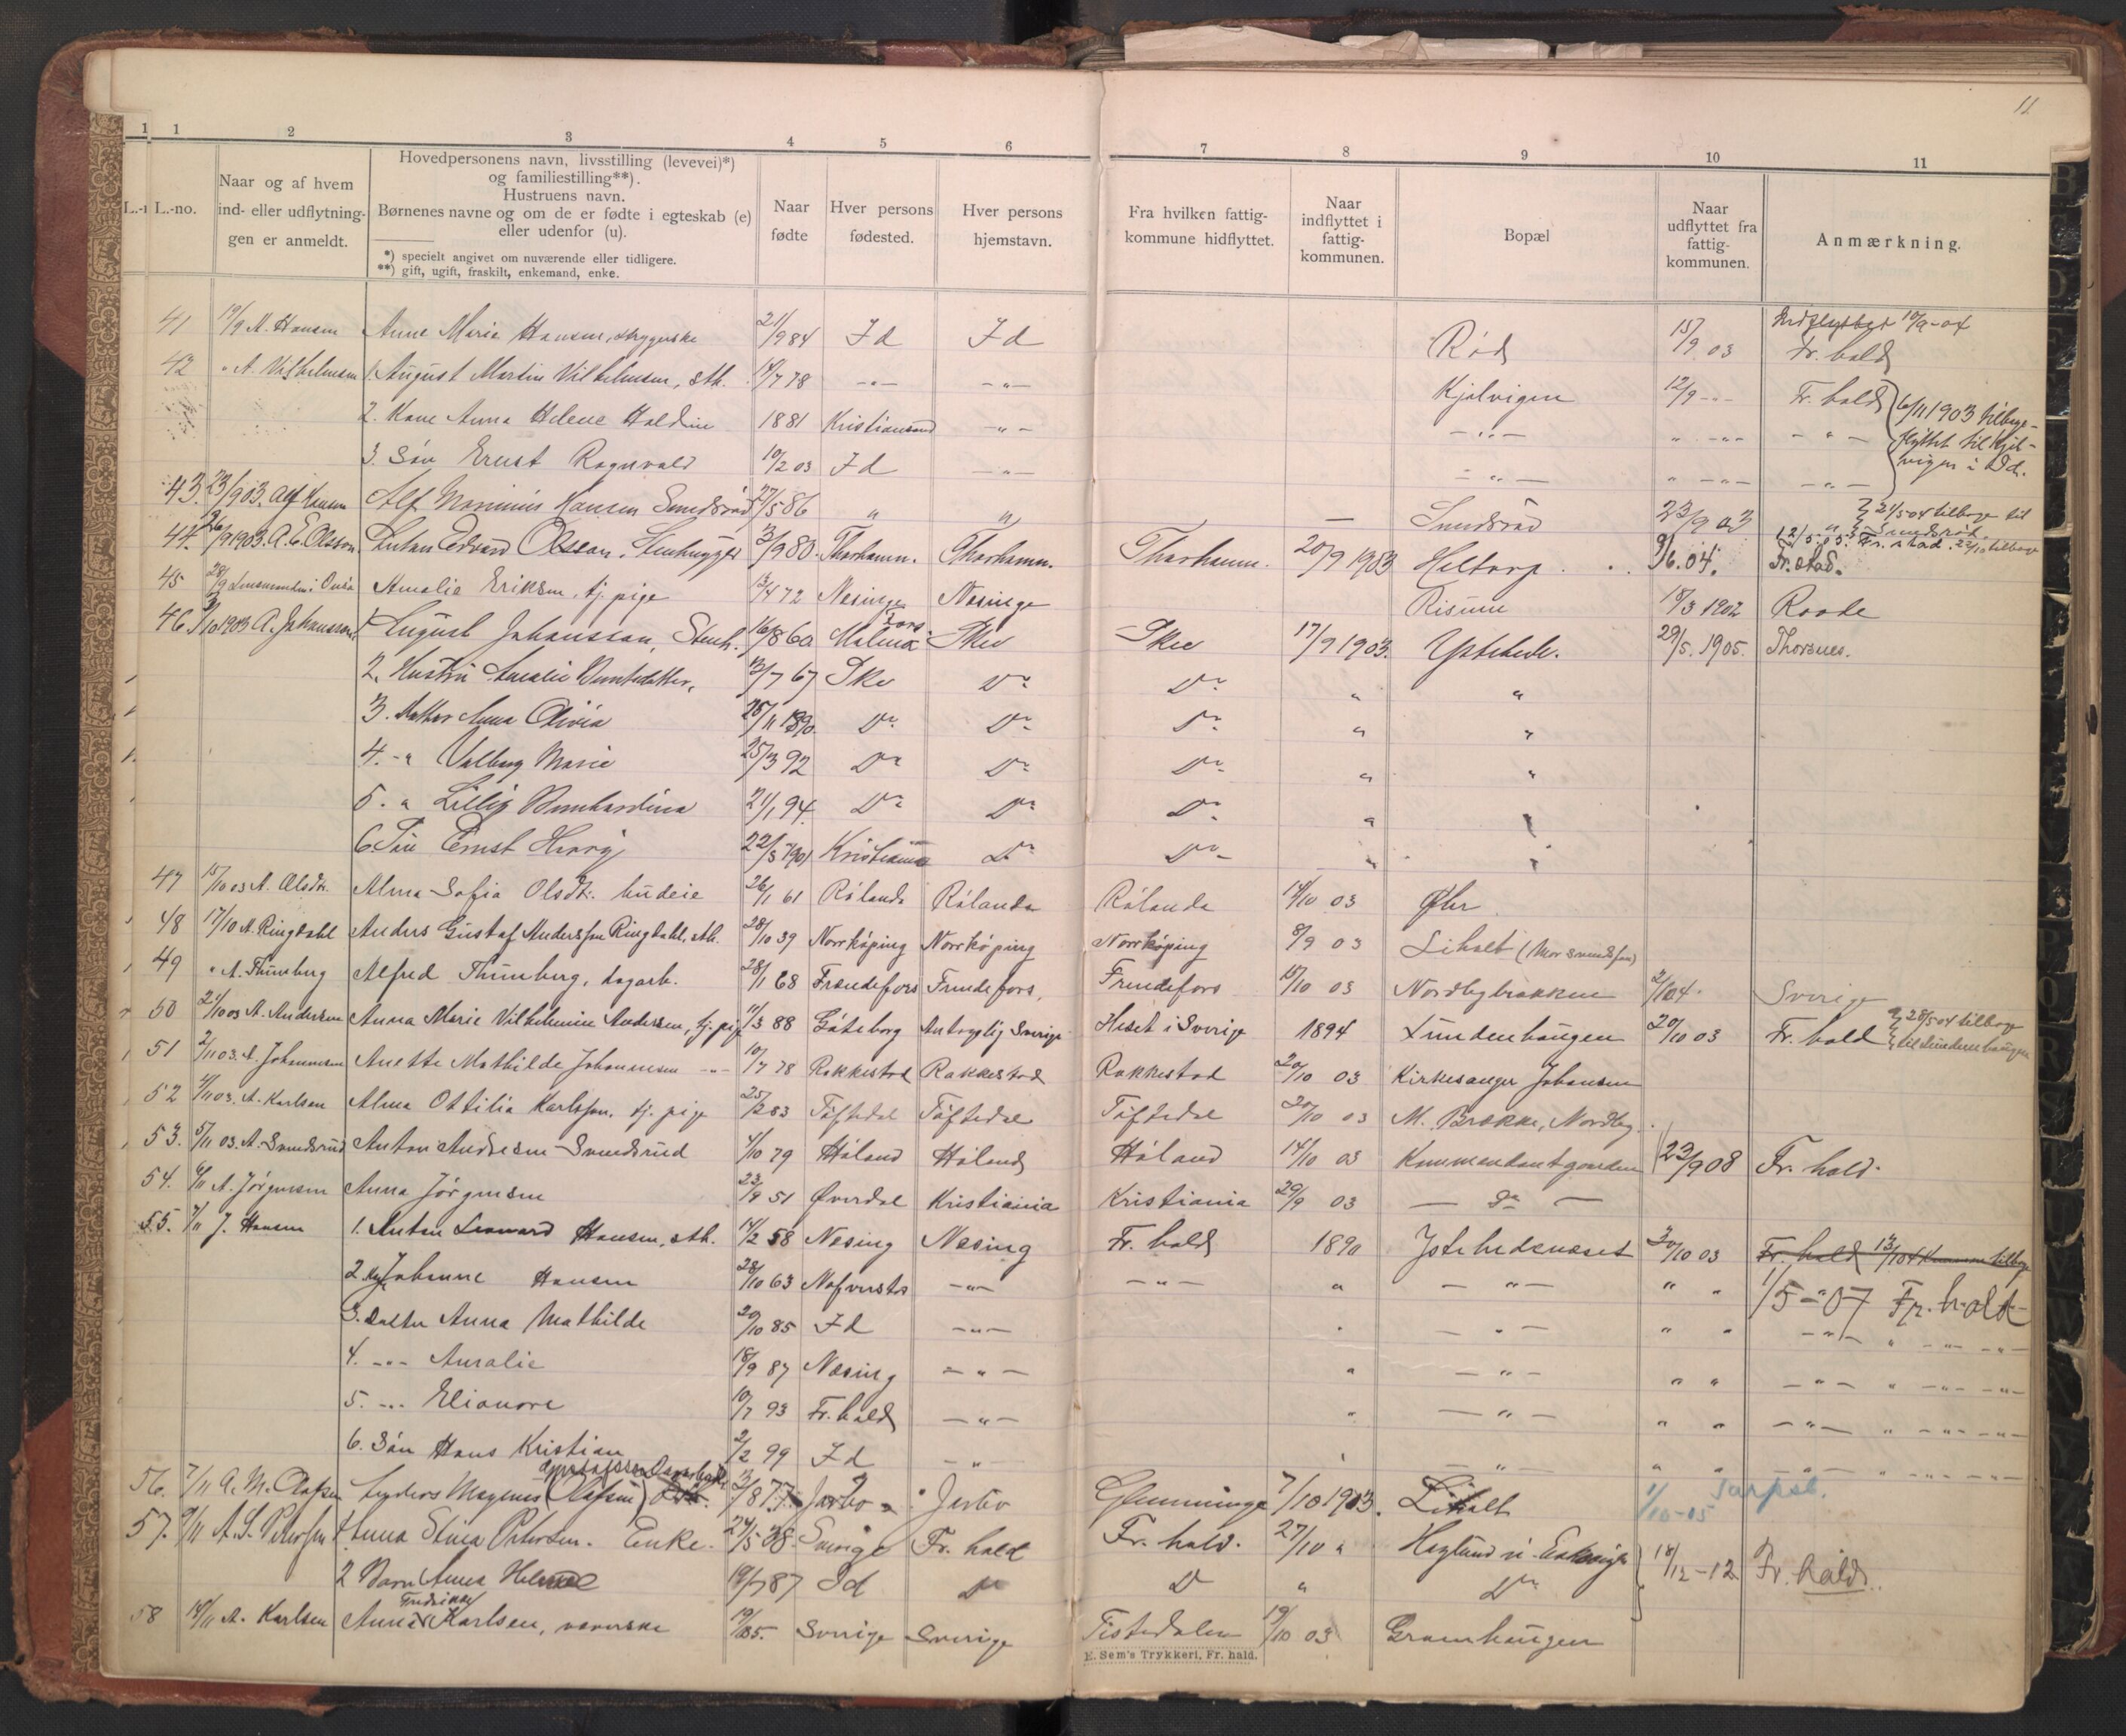 11
1 1 2 3 4 5 6 7 8 9 10 11
L.-no. Naar og af hvem ind- eller udflytningen er anmeldt.
Hovedpersonens navn, livsstilling (levevei)*) og familiestilling**).
Hustruens navn.
Børnenes navne og om de er fødte i egteskab (e) eller udenfor (u).
*) specielt angivet om nuværende eller tidligere.
**) gift, ugift, fraskilt, enkemand, enke.
Naar fødte
Hver persons fødested.
Hver persons hjemstavn.
Fra hvilken fattigkommune hidflyttet.
Naar indflyttet i fattigkommunen.
Bopæl
Naar udflyttet fra fattigkommunen.
Anmærkning.
41 19/9 A. Hansen Anne Marie Hansen, strygerske 21/9 84 Id Id Rød 15/9 03 Indflyttet 10/9-04 Fr. hald
42 " A. Vilhelmsen 1. August Martin Vilhelmsen, sth. 14/7 78 -"- -"- Kjølvigen 12/9 -"- Fr. hald 6/11 1903 tilbageflyttet til Kjølvigen i Id.
2. Kone Anna Helene Haldine 1881 Kristiansund -"- -"- " -"- -"-
3. Søn Ernst Ragnvald 10/2 03 Id -"- -"- " -"- -"-
43. 23/9 03. Alf Hansen Alf Marinius Hansen Smedsrød 27/5 86 " " — Smedsrød 23/9 03 " 21/5 04 tilbage til Smedsrød.
44. 26/9 1903. A. E. Olsson Edvard Olsson, Stenhugger 3/9 80. Tharhamn. Tharhamn. Tharhamn. 20/9 1903 Heltorp 9/6. 04. Fr. stad. 12/5-05. Fr. stad. 22/10 tilbage
45 28/9 Lensmanden i Onsø Amalie Eriksen, tj. pige 13/4 72 Næsinge Næsinge Risum 18/3 1902 Raade
46 3/10 1903 A. Johansson. 1. August Johansson, Stenh. 16/8 60 Malma Skee Skee 17/9 1903. Ystehede. 29/5. 1905. Thorsnes.
2. Hustru Amalie Berntsdatter, 13/7 67 Ske Do Do " "
3. Datter Anna Olivia 26/11 1890. Do Do Do " "
4. -"- Valborg Marie 25/3 92 Do Do Do " "
5. " Lilly Bernhardina 21/1 94. Do Do Do " "
6. Søn Ernst Henry 22/3 1901 Kristiania Do Do " "
47 15/10 03 A. Olsdtr. Alma Sofia Olsdtr. budeie 26/1 61 Rølanda Rølanda Rølanda 14/10 03 Øbr
48 17/10 A. Ringdahl Anders Gustaf Andersson Ringdahl, sth. 28/10 39 Norrköping Norrköping Norrköping 8/9 03 Liholt
49 " A. Thunberg Alfred Thunberg, dagarb. 28/1 68 Frændefors Frendefors, Frendefors 15/10 03 Nordbybrækken 2/1 04. Sverige
50 21/10 03 A. Andersen Anna Marie Vilhelmine Andersen, tj. pige 11/3 88 Göteborg Antagelig Sverige Heset i Sverige 1894 Lundenhaugen 20/10 03 Fr. hald 28/5 04 tilbage til Lundenhaugen
51 2/11 03. A. Johannesen Anette Mathilde Johannesen -"- 10/7 78 Rakkestad Rakkestad Rakkestad 20/10 03 Kirkesanger Johansen
52 4/11 03. A. Karlsen Alma Ottilia Karlsson, tj. pige 25/2 83 Töftedal Töftedal Töftedal 20/10 03 M. Brække, Nordby.
53. 5/11 03. A. Svendsrud Anton Andresen Svendsrud 4/10 79 Høland Høland Høland 14/10 03 Kommandantgaarden 23/9 08 Fr. hald.
54. 6/11 A. Jørgensen Anna Jørgensen 23/9 51 Øverdal Kristiania Kristiania 29/9 03 — do —
55. 7/11 J. Hansen 1. Anton Leonard Hansen, sth. 14/2 58 Næsing Næsing Fr. hald 1890 Ystehedsnæset 30/10 03 Fr. hald 13/1 04 Kommen tilbage
2. Johanne Hansen 28/10 63 Nafverstad -"- -"- " -"- " " 1/5-07 Fr. hald
3. datter Anna Mathilde 20/10 85 Id -"- " -"- " " -"- " -"- -"-
4. -"- Amalie 18/9 87 Næsing -"- " -"- " " -"- " -"- -"-
5. -"- Elionore 10/7 93 Fr. hald -"- " -"- " " -"- " -"- -"-
6. Søn Hans Kristian 2/2 99 Id -"- " -"- " " -"- " -"- -"-
56. 7/11 A. M. Olafsen Anders Magnus (Olafsen) 13/8 77. Jærbo Jerbo Glemminge 7/10 1903. Liholt 1/10-05 Sarpsb.
57. 9/11 A. S. Petersen 1. Anna Stina Petersen. Enke. 24/5 38. Sverige Fr. hald Fr. hald. 27/10 " Høglund v. Enkevigen 18/12-12 Fr. hald.
2 Barn Anna Helene 19/7 87 Id Do D " Do
58 14/11 A. Karlsen Anna Fredrikke Karlsen, væverske 19/ 85. Sverige Sverige Tistedalen 19/10 03 Granhaugen
E. Sem's Trykkeri, Fr. hald.